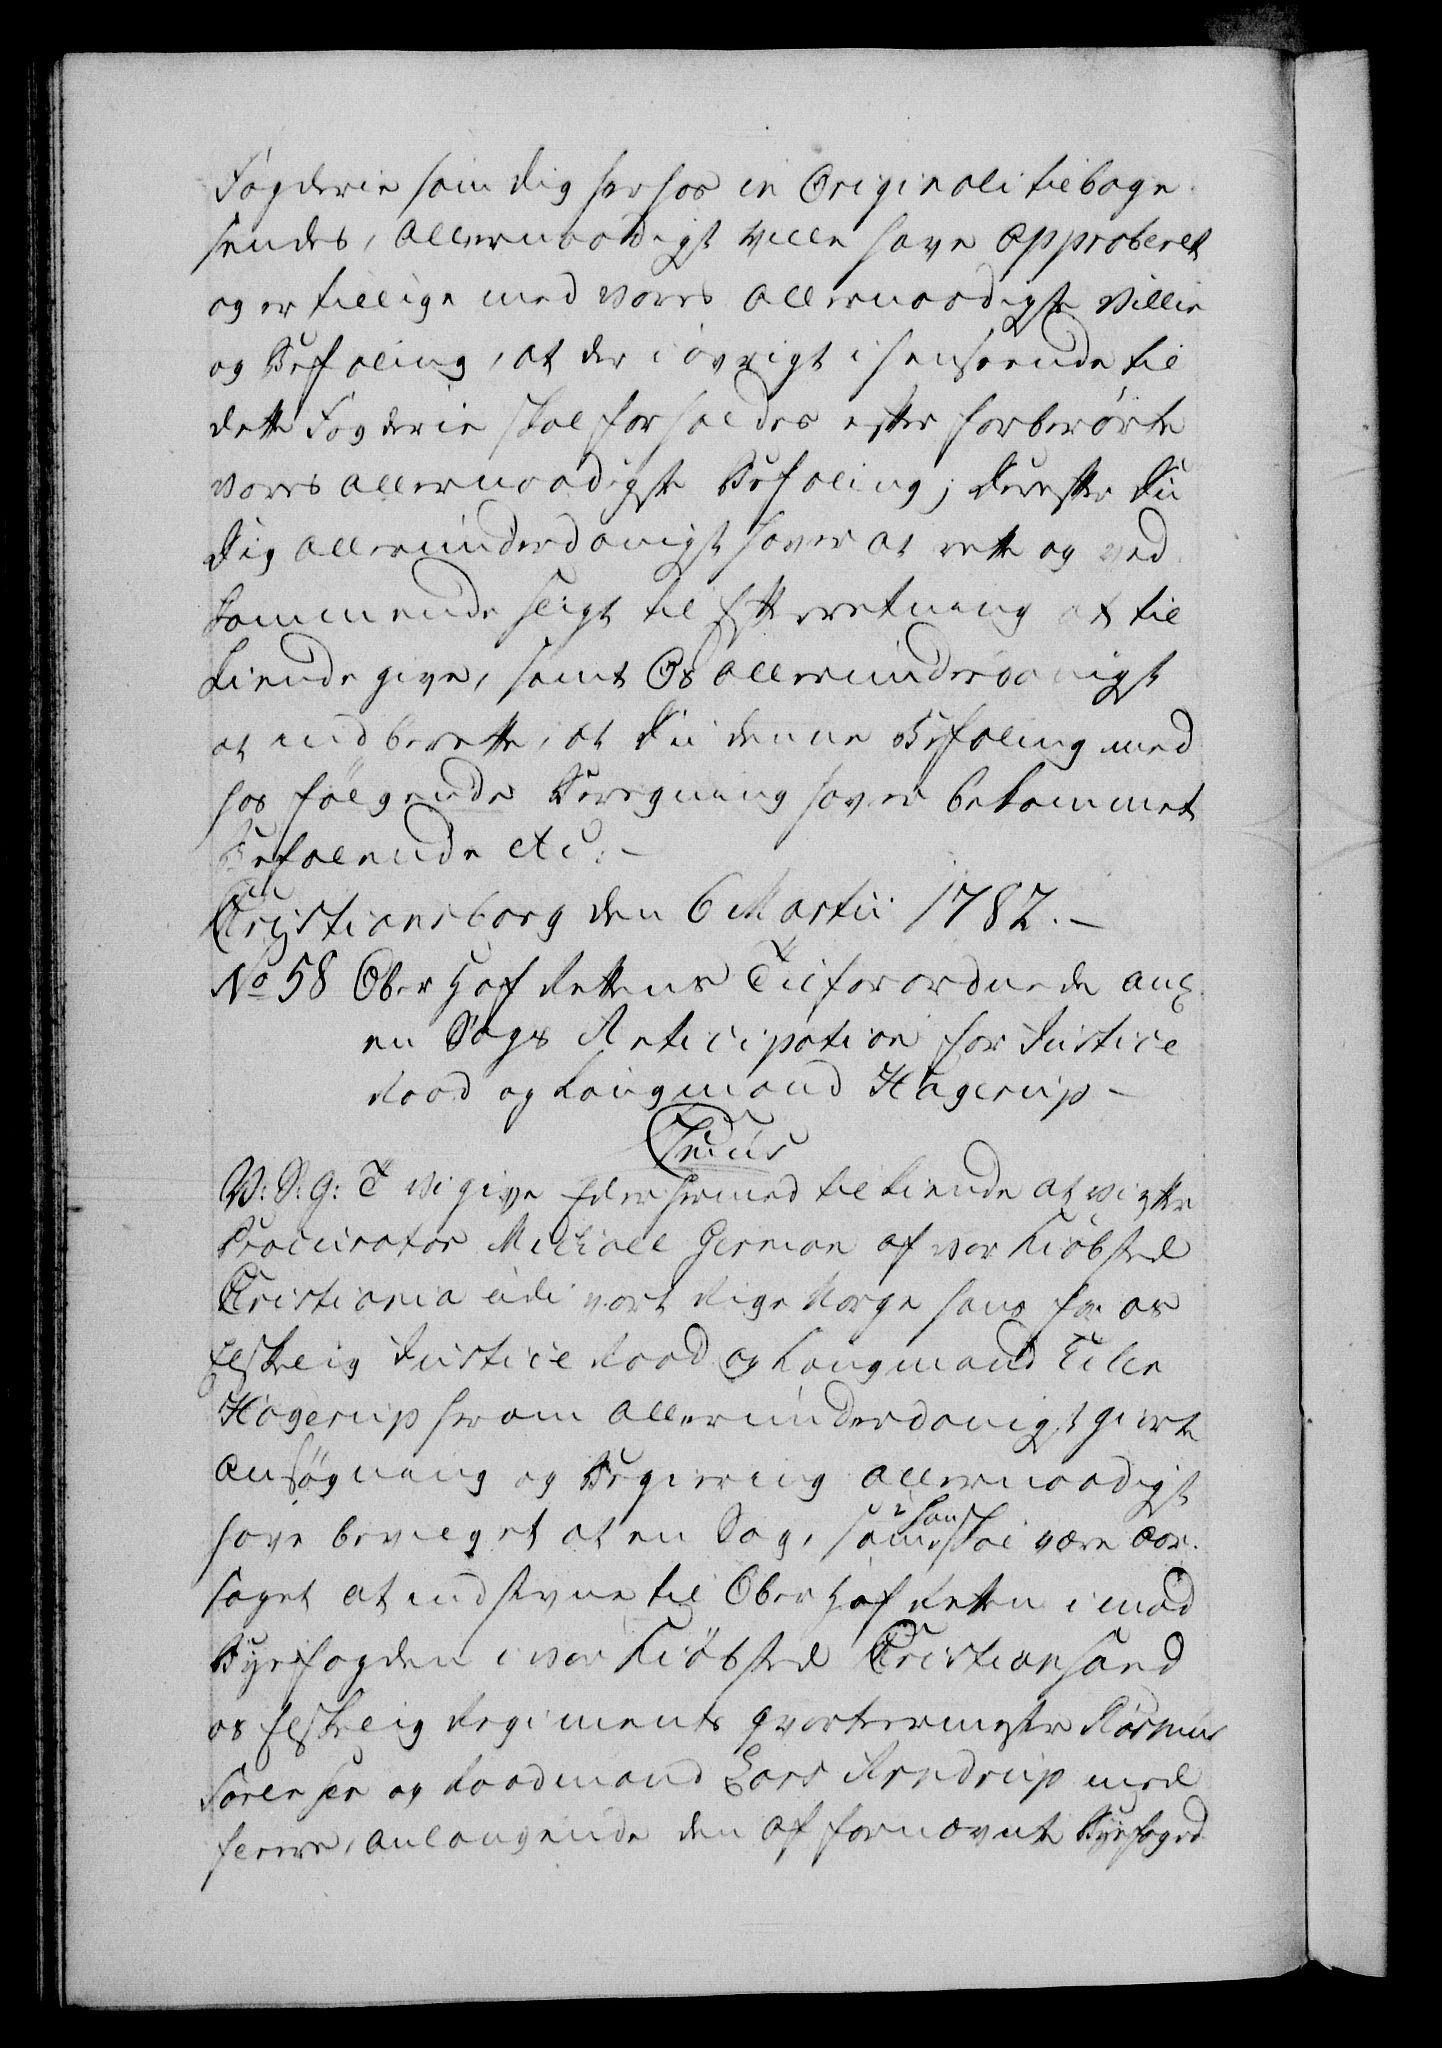 Fogderie som dig herhos in Originali tilbage
sendes, allernaadigst ville have approberet
og er tillige med vores allernaadigste Villie
og Befaling, at der i øvrigt i henseende til
dette Fogderie skal forholdes efter forberørte
vores allernaadigste Befaling; Derefter Du
Dig allerunderdanigst haver at rette og ved
kommende sligt til Efterretning at til
kiende give, samt Os allerunderdanigst
at indberette, at Du denne Befaling med
hos følgende Beregning haver bekommet
Befalende etc:
Christiansborg den 6 Martii 1782.
No 58 Ober Hof Rettens Tilforordnede ang:
en Sags Anticipation for Justice
Raad og Laugmand Hagerup
C 7mus
V: S: G: T Vi give Eder hermed tilkiende at vi efter
Procurator Michael German af vor Kiøbsted
Christiania udi vort Rige Norge hans for os
Elskelig Justice Raad og Laugmand Eiler
Hagerup herom allerunderdanigst giorte
Ansøgning og Begiering allernaadigst
have bevæget at en Sag, som han skal være aar-
saget at indstevne til Ober Hof Retten imod
Byefogden i vor Kiøbsted Christiansand
os Elskelig Regiments Qvarteermester Rasmus
Sørensen og Raadmand Lars Arndrup med
fleere, anlangende den af fornævnte Byefoged